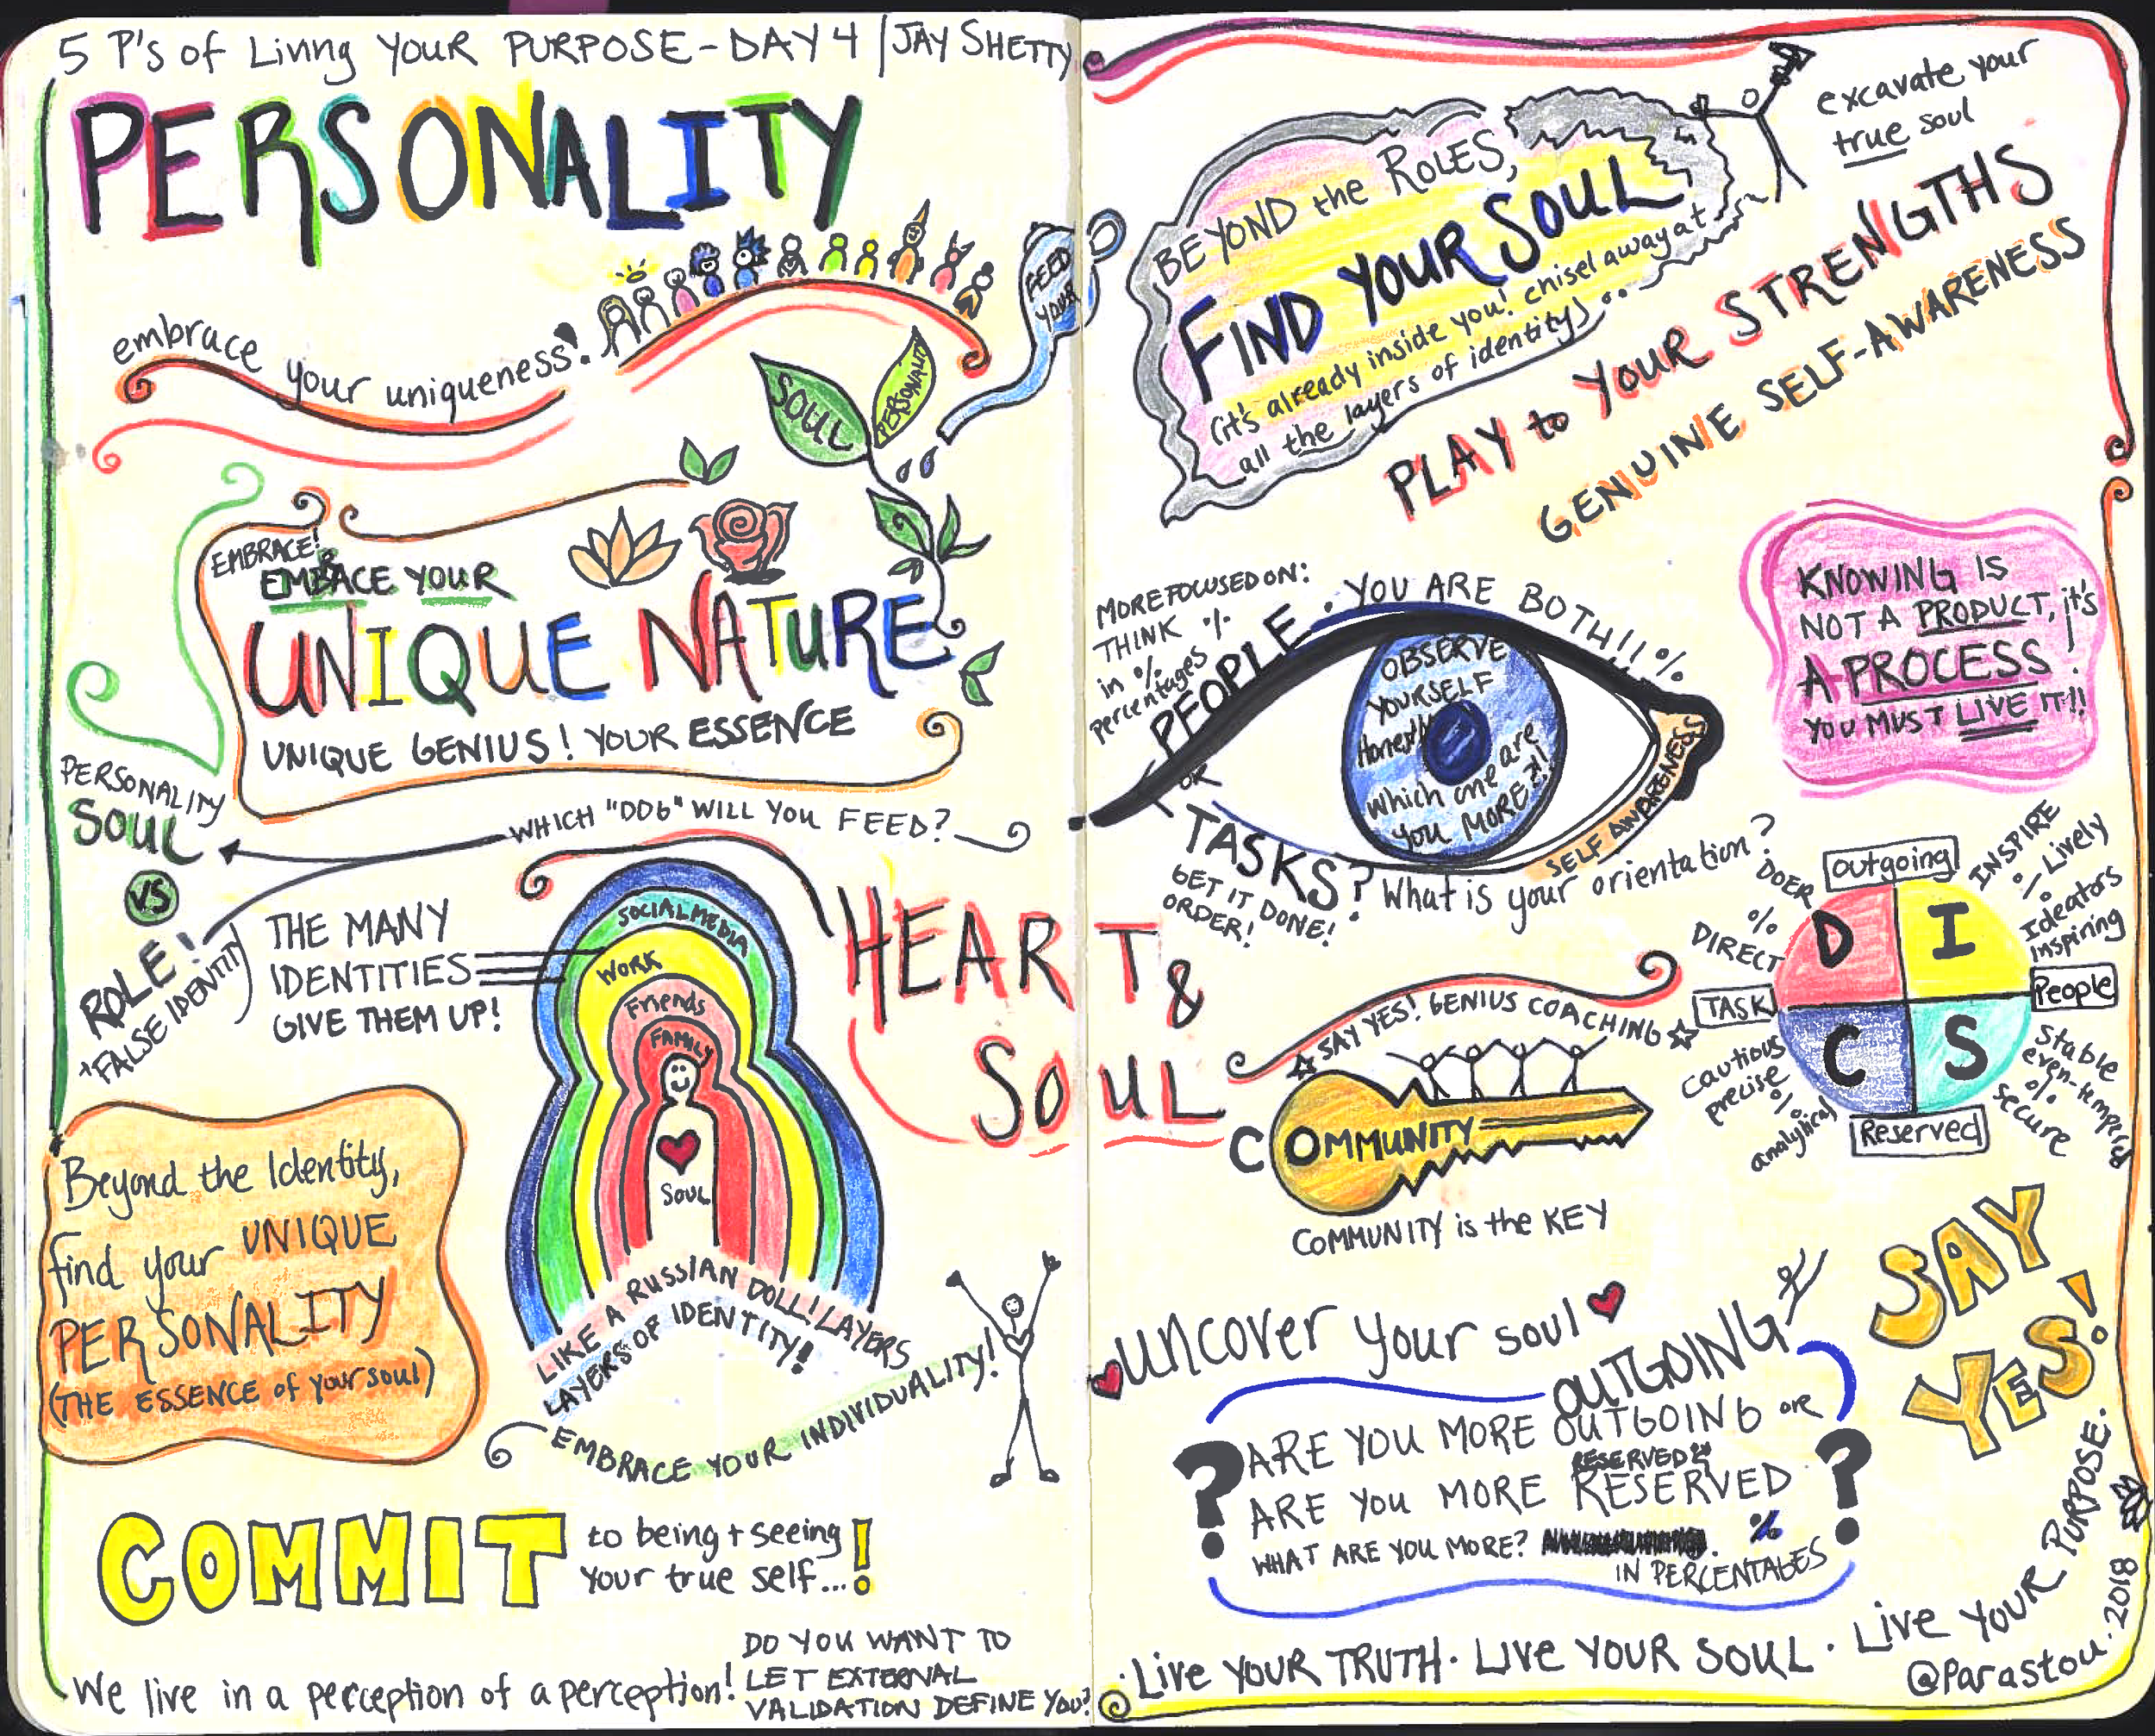 5 P's of Living Your PURPOSE - DAY 4 | JAY SHETTY
PERSONALITY
embrace your uniqueness!
FEED
YOUR
SOUL
PERSONALITY
EMBRACE!
EMBRACE YOUR
UNIQUE NATURE
UNIQUE GENIUS! YOUR ESSENCE
WHICH "DOG" WILL YOU FEED?
PERSONALITY
SOUL
VS
ROLE!
FALSE IDENTITY
THE MANY
IDENTITIES
GIVE THEM UP!
SOCIAL MEDIA
WORK
Friends
FAMILY
SOUL
LIKE A RUSSIAN DOLL! LAYERS
LAYERS OF IDENTITY!
HEART &
SOUL
Beyond the Identity,
find your UNIQUE
PERSONALITY
(THE ESSENCE of your soul)
EMBRACE YOUR INDIVIDUALITY!
COMMIT
to being + seeing
your true self...!
We live in a perception of a perception!
DO YOU WANT TO
LET EXTERNAL
VALIDATION DEFINE YOU?
BEYOND the ROLES,
FIND YOUR SOUL
(it's already inside you! chisel away at
all the layers of identity)
excavate your
true soul
PLAY to YOUR STRENGTHS
GENUINE SELF-AWARENESS
MORE FOCUSED ON:
THINK %
in %
percentages
PEOPLE
YOU ARE BOTH!! %
OR
TASKS?
GET IT DONE!
ORDER!
OBSERVE
YOURSELF
Honestly
which one are
YOU MORE?!
SELF AWARENESS
What is your orientation?
KNOWING IS
NOT A PRODUCT, it's
A PROCESS!
YOU MUST LIVE IT!!
Outgoing
DOER
%
DIRECT
INSPIRE
% Lively
%
Ideators
Inspiring
D I
C S
TASK
People
cautious
precise
%
analytical
Stable
even-tempered
%
secure
Reserved
SAY YES! GENIUS COACHING
COMMUNITY
COMMUNITY is the KEY
SAY
YES!
uncover your soul
OUTGOING
? ARE YOU MORE OUTGOING or ?
RESERVED?
ARE YOU MORE RESERVED
WHAT ARE YOU MORE? %
IN PERCENTAGES
Live YOUR TRUTH · Live YOUR SOUL · Live YOUR PURPOSE.
@Parastou. 2018